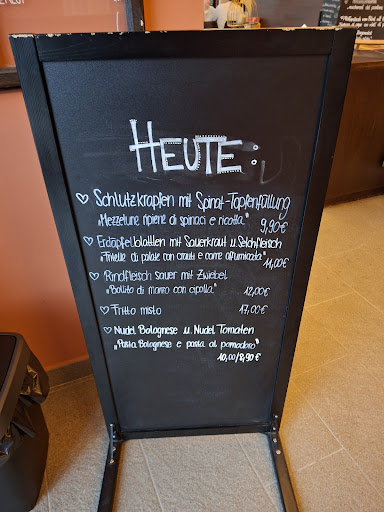 HEUTE:
♡ Schlutzkrapfen mit Spinat-Topfenfüllung
"Mezzelune ripiene di spinaci e ricotta" 9,90€
♡ Erdäpfelblattlen mit Sauerkraut u. Selchfleisch
"Frittelle di patate con crauti e carne affumicata" 14,00€
♡ Rindfleisch sauer mit Zwiebel
"Bollito di manzo con cipolla" 12,00€
♡ Fritto misto 17,00€
♡ Nudel Bolognese u. Nudel Tomaten
"Pasta Bolognese e pasta al pomodoro"
10,00/8,90€